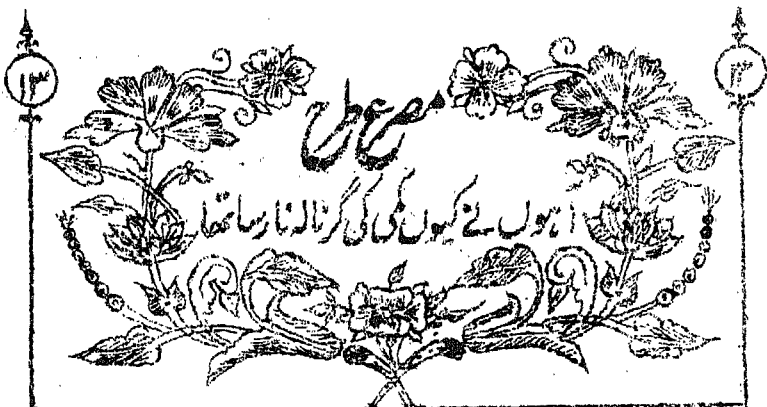 مصرع طرح
آہوں نے کیوں کمی کی گر نالہ نارسا تھا